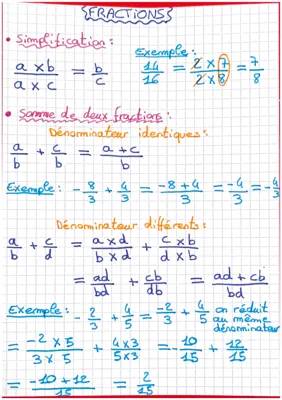 {FRACTIONS}
• Simplification :
a x b / a x c = b / c
Exemple :
14/16 = 2 x 7 / 2 x 8 = 7/8
• Somme de deux fractions :
Dénominateur identiques :
a/b + c/b = a + c / b
Exemple : -8/3 + 4/3 = -8 + 4 / 3 = -4/3 = -4/3
Dénominateur différents :
a/b + c/d = a x d / b x d + c x b / d x b
= ad/bd + cb/db = ad + cb / bd
Exemple : -2/3 + 4/5 = -2/3 + 4/5 on réduit au même dénominateur
= -2 x 5 / 3 x 5 + 4 x 3 / 5 x 3 = -10/15 + 12/15
= -10 + 12 / 15 = 2/15